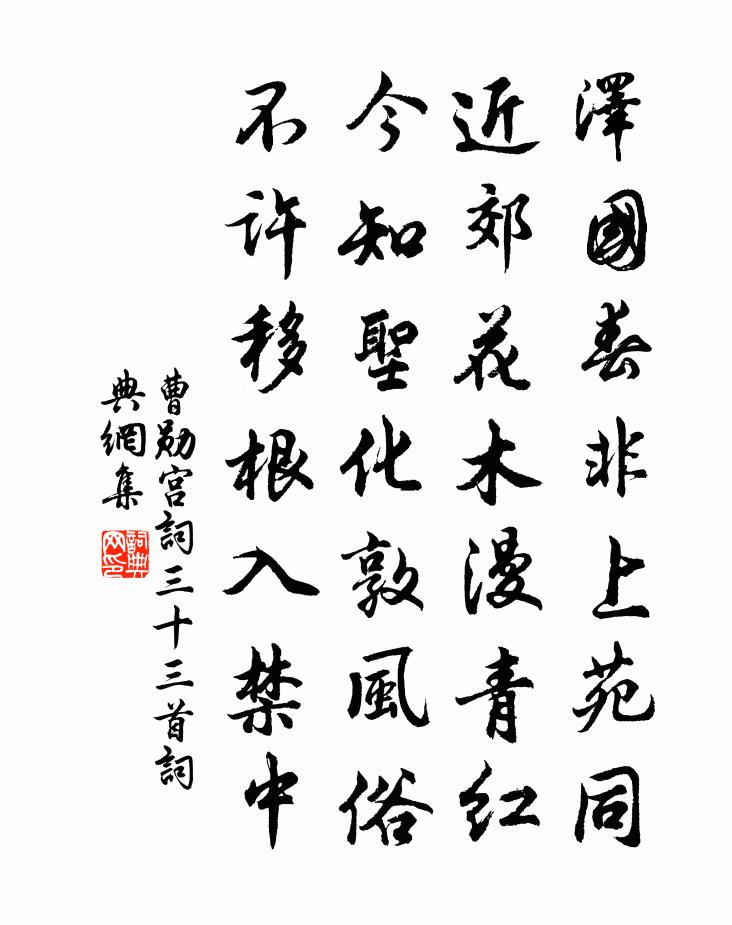 澤國春非上苑同
近郊花木漫青紅
今知聖化敦風俗
不許移根入禁中
曹勛宮詞三十三首詞
典網集
詞典
网印